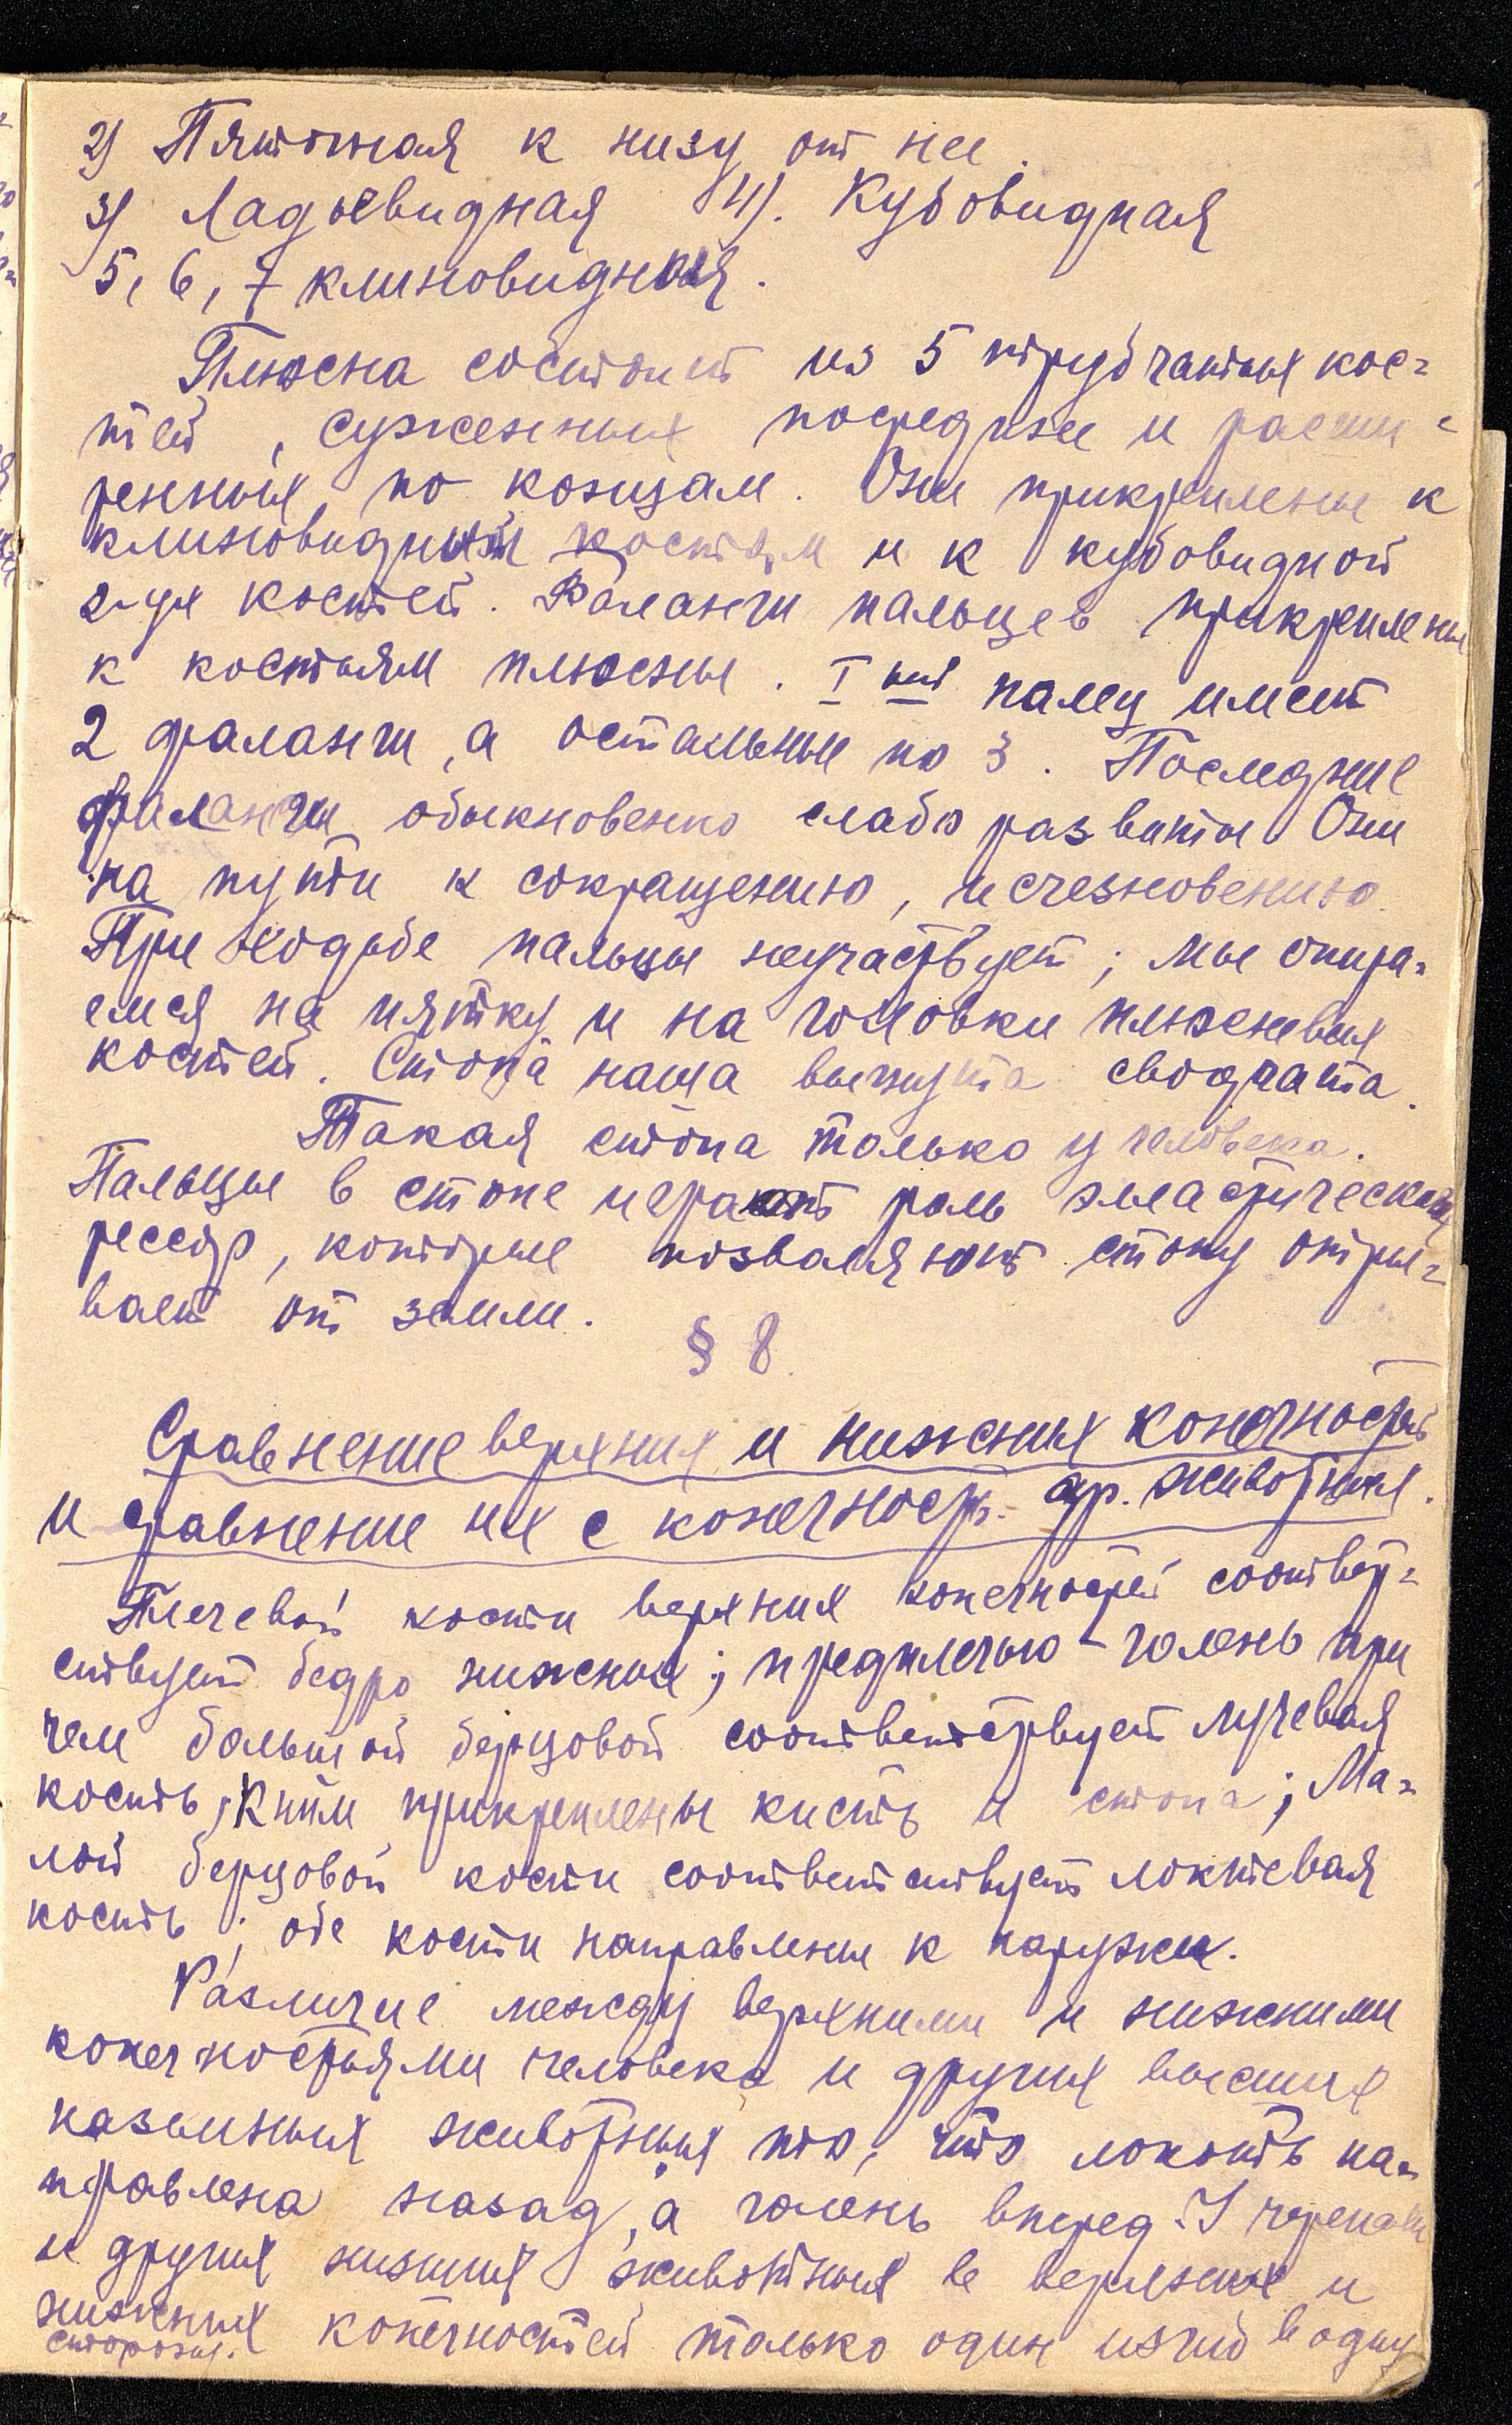 2) Пяточная к низу от нее.
3) Ладьевидная 4). Кубовидная
5, 6, 7 клиновидная.
Плюсна состоит из 5 трубчатых кос-
тей, суженных посредине и расши-
ренных по концам. Они прикреплены к
клиновидным костям и к кубовидной
2-ум костей. Фаланги пальцев прикреплены
к костьям плюсны. I ый палец имеет
2 фаланги, а остальные по 3. Последние
фаланги обыкновенно слабо развиты. Они
на пути к сокращению, исчезновению.
При ходьбе пальцы неучаствует; мы опира-
емся на пятку и на головки плюсневых
костей. Стопа наша выгнута сводчата.
Такая стопа только у человека.
Пальцы в стопе играют роль эластических
рессор, которые позваляют стопу отры-
вает от земли.
§ 8.
Сравнение верхних и нижних конечностей
и сравнение их с конечност. др. животных.
Плечевой кости верхних конечностей соответ-
ствует бедро нижных; предплечью - голень при
чем большой берцовой соответствует лучевая
кость, к ним прикреплены кисть и стопа; Ма-
лой берцовой кости соответствует локтевая
кость; обе кости направлены к наружи.
Различие между верхними и нижними
конечностьями человека и других высших
наземных животных то, что локоть на-
правлена назад, а голень вперед. У черепахи
и других низших животных в верхних и
нижних конечностей только один изгиб в одну
сторону.